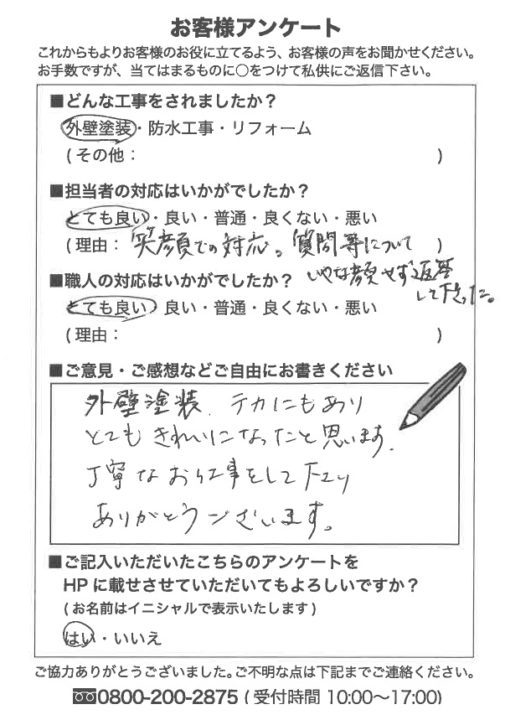 お客様アンケート
これからもよりお客様のお役に立てるよう、お客様の声をお聞かせください。
お手数ですが、当てはまるものに○をつけて私供にご返信下さい。
■どんな工事をされましたか？
外壁塗装・防水工事・リフォーム
(その他： )
■担当者の対応はいかがでしたか？
とても良い・良い・普通・良くない・悪い
(理由：笑顔での対応。質問等について )
いやな顔せず返答
して下さった。
■職人の対応はいかがでしたか？
とても良い・良い・普通・良くない・悪い
(理由： )
■ご意見・ご感想などご自由にお書きください
外壁塗装、テカにもあり
とてもきれいになったと思います。
丁寧なお仕事をして下さり
ありがとうございます。
■ご記入いただいたこちらのアンケートを
HPに載せさせていただいてもよろしいですか？
(お名前はイニシャルで表示いたします)
はい・いいえ
ご協力ありがとうございました。ご不明な点は下記までご連絡ください。
0800-200-2875 (受付時間 10:00〜17:00)